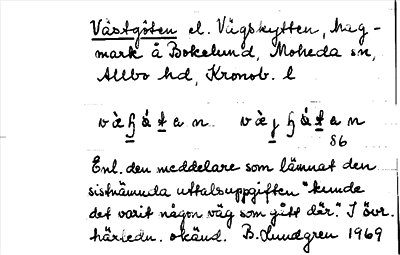 Västgöten el. Vägskytten, hag-
mark å Bokelund, Moheda sn,
Allbo hd, Kronob. l
86
Enl. den meddelare som lämnat den
sistnämnda uttalsuppgiften "kunde
det varit någon väg som gått där". I övr.
härledn. okänd. B. Lundgren 1969